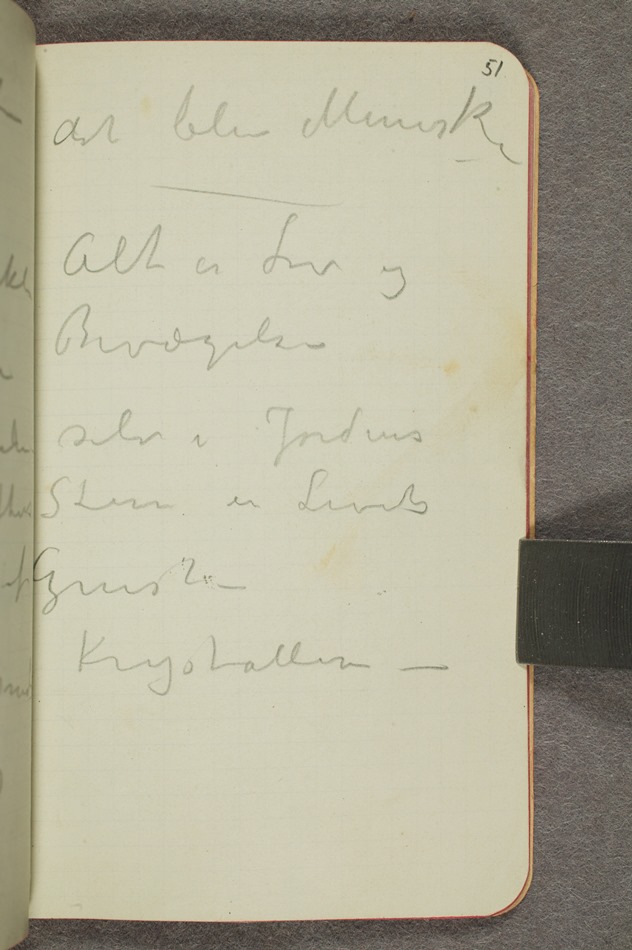 51
det blev Menneske
Alt er Liv og
Bevægelse
selv i Jordens
Steen er Livets
Gnist
Krystallen —